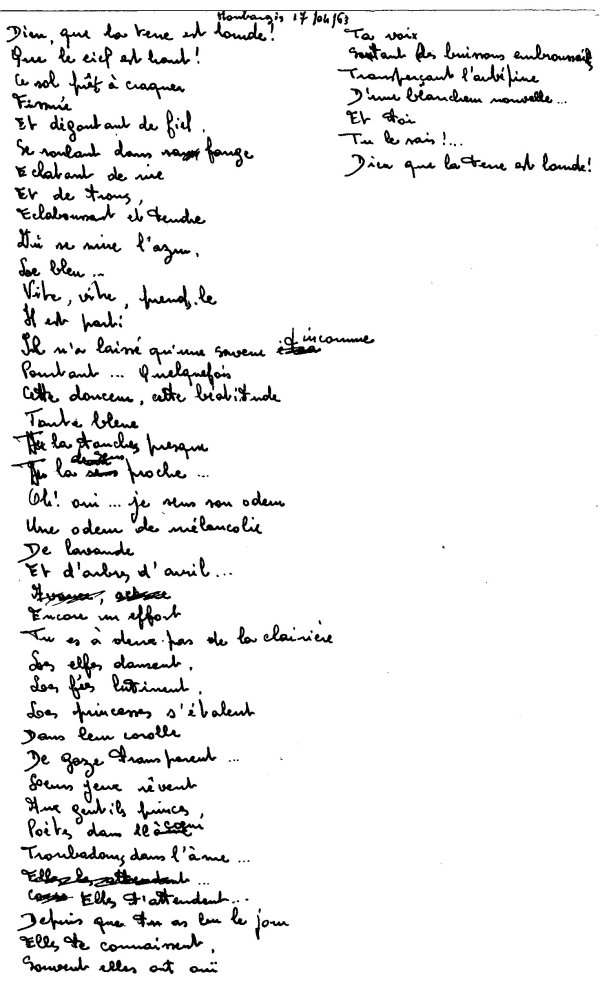 Montargis 17/04/63
Dieu, que la terre est lourde!
Que le ciel est haut!
Ce sol prêt à craquer
Fissuré
Et dégoutant de fiel,
Se roulant dans sa fange
Eclatant de rire
Et de trous,
Eclaboussant et tendre
Où se mire l'azur,
Le bleu...
Vite, vite, prends-le
Il est parti
Il n'a laissé qu'une saveur inconnue
Pourtant ... Quelquefois
Cette douceur, cette béatitude
Toute bleue
Tu la touches presque
Tu la devines proche ...
Oh! oui ... je sens son odeur
Une odeur de mélancolie
De lavande
Et d'arbres d'avril...
Encore un effort
Tu es à deux pas de la clairière
Les elfes dansent,
Les fées lutinent,
Les princesses s'étalent
Dans leur corolle
De gaze transparent ...
Leurs yeux rêvent
Aux gentils princes,
Poètes dans
Troubadours dans l'âme ...
Elles les attendent ...
Elles t'attendent...
Depuis que tu as vu le jour
Elles te connaissent,
Souvent elles ont ouï
Ta voix
Sortant des buissons embroussaillés
Transperçant l'aubépine
D'une blancheur nouvelle...
Et toi
Tu le sais!...
Dieu que la terre est lourde!